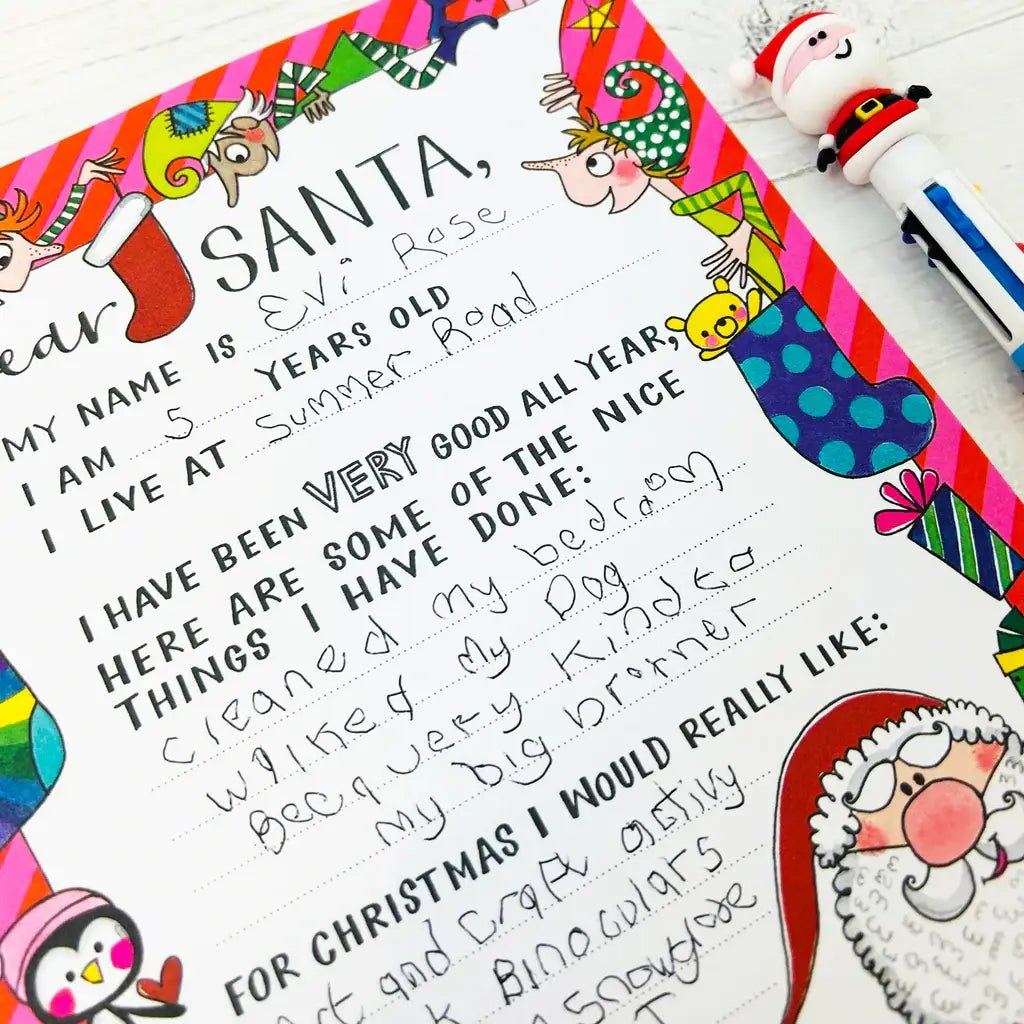 Dear SANTA,
MY NAME IS Evi Rose
I AM 5 YEARS OLD
I LIVE AT Summer Road
I HAVE BEEN VERY GOOD ALL YEAR,
HERE ARE SOME OF THE NICE
THINGS I HAVE DONE:
Cleaned my bedroom
Wlked my Dog
very Kind to
My big
FOR CHRISTMAS I WOULD REALLY LIKE:
and craft activy
Binoculars
snowglobe